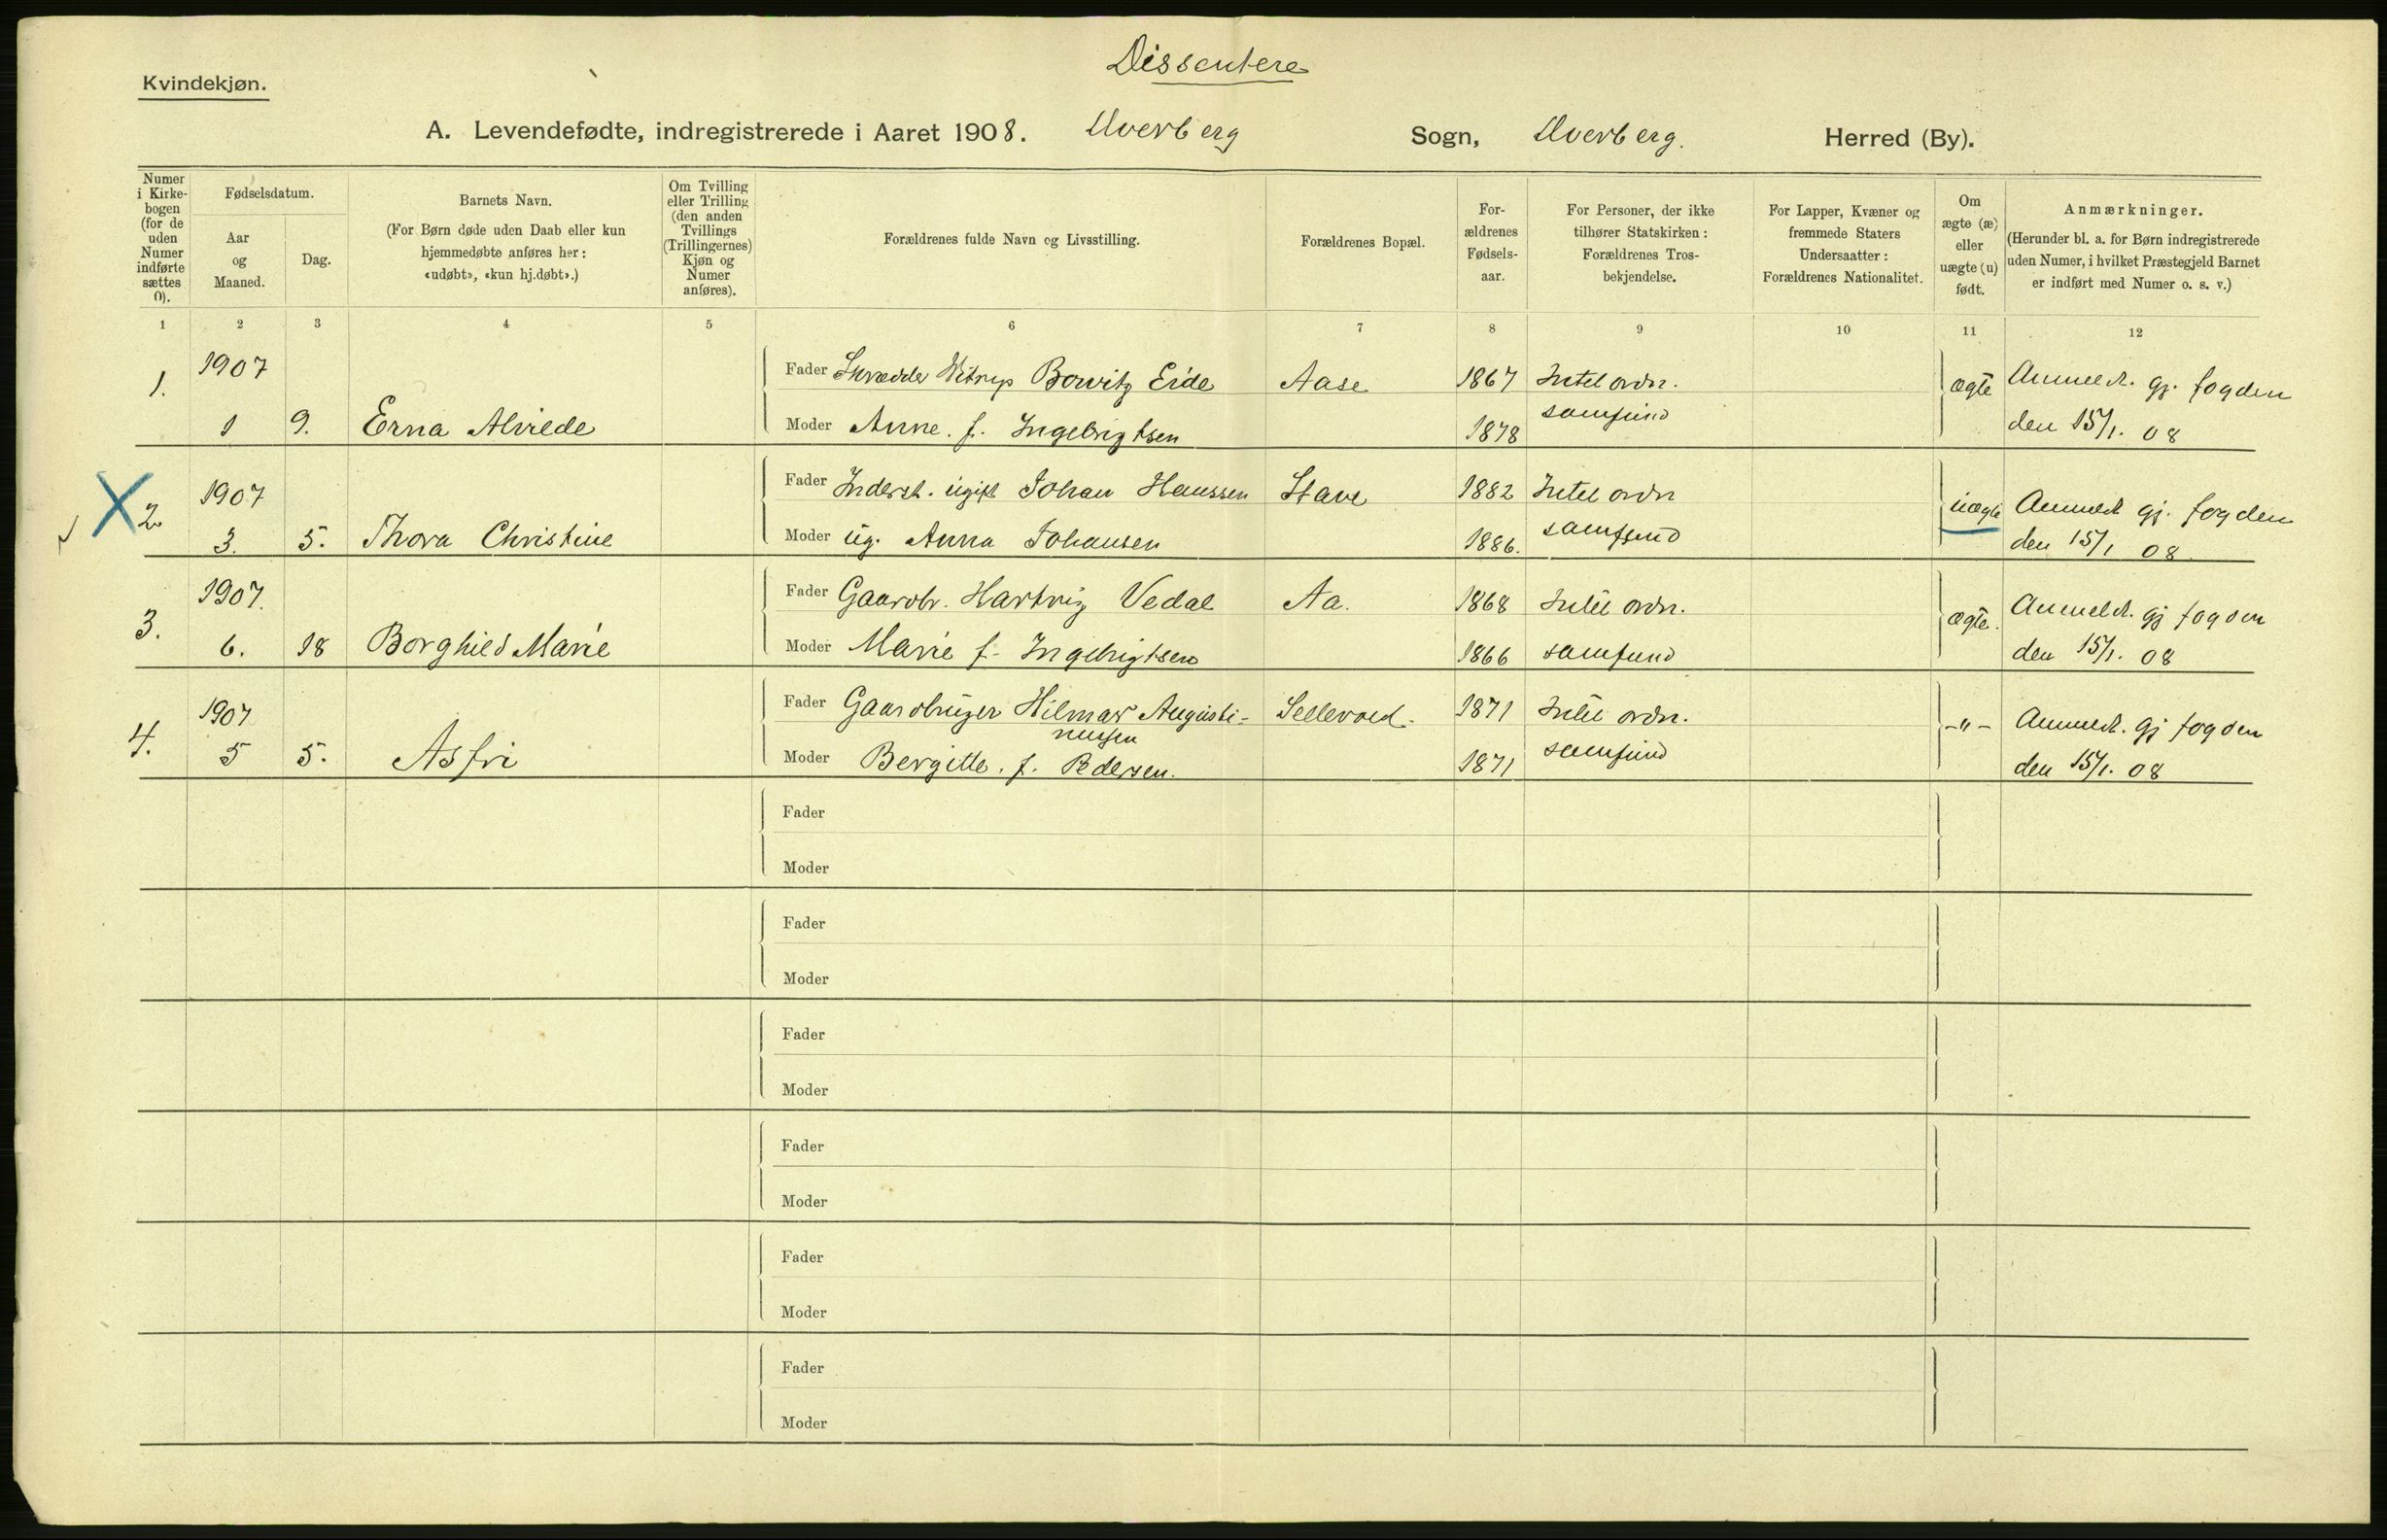 Dissentere
Kvindekjøn.
A. Levendefødte, indregistrerede i Aaret 1908. Dverberg Sogn, Dverberg. Herred (By).
Numer i Kirkebogen (for de uden Numer indførte sættes 0).
Fødselsdatum.
Aar og Maaned.
Dag.
Barnets Navn.
(For Børn døde uden Daab eller kun hjemmedøbte anføres her: «udøbt», «kun hj.døbt».)
Om Tvilling eller Trilling (den anden Tvillings (Trillingernes) Kjøn og Numer anføres).
Forældrenes fulde Navn og Livsstilling.
Forældrenes Bopæl.
For-ældrenes Fødsels-aar.
For Personer, der ikke tilhører Statskirken: Forældrenes Tros-bekjendelse.
For Lapper, Kvæner og fremmede Staters Undersaatter: Forældrenes Nationalitet.
Om ægte (æ) eller uægte (u) født.
Anmærkninger.
(Herunder bl. a. for Børn indregistrerede uden Numer, i hvilket Præstegjeld Barnet er indført med Numer o. s. v.)
1 2 3 4 5 6 7 8 9 10 11 12
1. 1907 Fader Skrædder Bowitz Eide Aase 1867 Intet ordn. ægte Anmeldt. gj. fogden
1 9. Erna Alvilde Moder Anne. f. Ingebrigtsen 1878 samfund den 15/1. 08
2 1907 Fader Inderst. ugift Johan Hanssen Stave 1882 Intet ordn uægte Anmeldt gj. fogden
3. 5. Thora Christine Moder ug. Anna Johansen 1886. samfund den 15/1 08
3. 1907. Fader Gaardbr. Hartvig Vedal Aa. 1868 Intet ordn. ægte. Anmeldt. gj fogden
6. 18 Borghild Marie Moder Marie f. Ingebrigtsen 1866 samfund den 15/1. 08
4. 1907 Fader Gaardbruger Hilmar Augusti- Sellevold. 1871 Intet ordn. -"- Anmeldt. gj fogden
nussen
5 5. Asfri Moder Bergitte. f. Pedersen. 1871 samfund den 15/1. 08
Fader
Moder
Fader
Moder
Fader
Moder
Fader
Moder
Fader
Moder
Fader
Moder